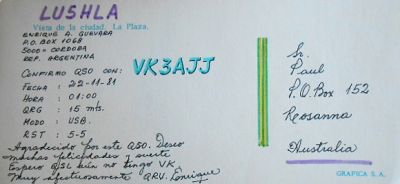 LU5HLA
Vista de la ciudad. La Plaza.
ENRIQUE A. GUEVARA
P.O. BOX 1068
5000 = CORDOBA
REP. ARGENTINA
CONFIRMO QSO CON: VK3AJJ
FECHA : 22-11-81
HORA : 01:00
QRG : 15 mts.
MODO : USB.
RST : 5-5
Agradecido por este QSO. Deseo
muchas felicidades y suerte
Espero QSL aún no tengo VK
Muy afectuosamente QRV. Enrique
Sr.
Paul
P.O. Box 152
Rosanna
Australia
GRAFICA S.A.